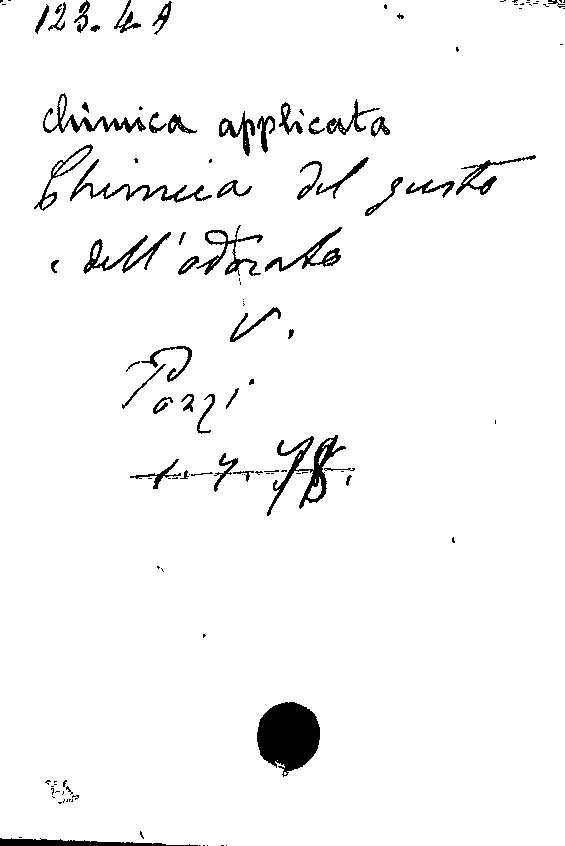 123. 4 A
chimica applicata
Chimica del gusto
e dell'odorato
V.
Pozzi